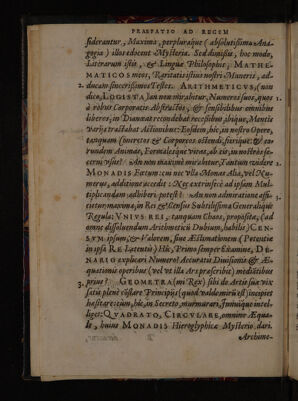 PRAEFATIO AD REGEM
siderantur, Maxima, perpluráque (absolutissima Ana-
gogia) illos edicent Mysteria. Sed dimissis, hoc modo,
Literarum istis, & Linguæ Philosophis; MATHE-
MATICOS meos, Raritatis istius nostri Muneris, ad-
2. ducam sincerissimos Testes. ARITHMETICVS, (non
dico, LOGISTA) an non mirabitur, Numeros suos, quos
à rebus Corporatis Abstractos, & sensibilibus omnibus
liberos, in Dianœa recondebat recessibus, ibique, Mentis
varijs tractabat Actionibus: Eosdem, hic, in nostro Opere,
tanquam Concretos & Corporeos ostendi, fierique: & eo-
rundem Animas, Formalesque vitas, ab ijs, in nostros se-
cerni vsus? An non maximè mirabitur, Tantum videre
MONADIS Fœtum: cum nec vlla Monas Alia, vel Nu-
merus, additione accedit: Neq́ extrinsecè ad ipsam Mul-
tiplicandam adhiberi potest? An non admiratione affi-
3. cietur maxima, in Rei & Census Subtilissima Generalique
Regula; VNIVS REI, tanquam Chaos, proposita, (ad
omne dissoluendum Arithmeticũ Dubium, habilis) CEN-
SVM ipsum, & Valorem, siue Æstimationem (Potentia
in ipsa RE Latentis) His, Primo semper Examine, DE-
NARIO explicari Numero? Accuratis Diuisionis & Æ-
quationis operibus (vel vt illa Ars præscribit) mediatibus
prius? GEOMETRA (mi Rex) sibi de Artis suæ vix
satis plenè cõstare Principijs (quod valdè mirũ est) incipiet
hæsitare: cum, hic, in Secreto, murmurari, Innuique intel-
liget: QVADRATO, CIRCVLARE, omnino Æqua-
le, huius MONADIS Hieroglyphicæ Mysterio, dari.
Archime-